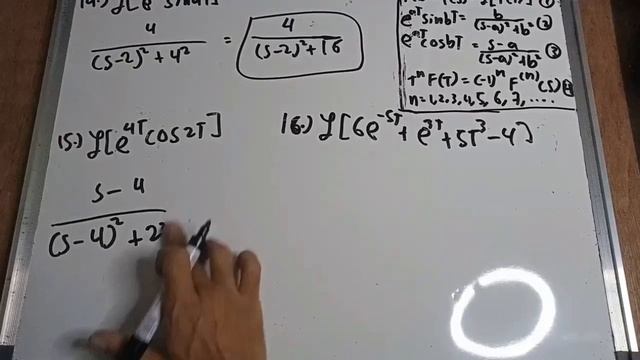 4 / (s-2)² + 4² = 4 / (s-2)² + 16
e^{aT} sinbT = b / (s-a)² + b²
e^{aT} cosbT = s-a / (s-a)² + b² (3)
T^n F(T) = (-1)^n F^{(n)} (s)
n = 1, 2, 3, 4, 5, 6, 7, ....
15.) ℒ[e^{4T} cos2T]
s-4 / (s-4)² + 2²
16.) ℒ[6e^{-5T} + e^{3T} + 5T³ - 4]